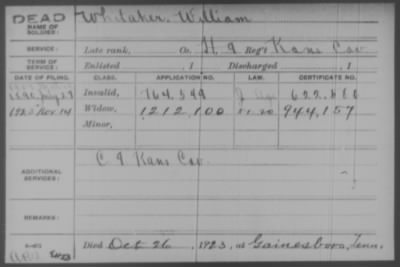 DEAD
NAME OF SOLDIER: Whitaker, William
SERVICE: Late rank, Co. H, 9 Reg't Kans Cav
TERM OF SERVICE: Enlisted , 1 Discharged , 1
DATE OF FILING. CLASS. APPLICATION NO. LAW. CERTIFICATE NO.
July Invalid, 764,544
1923 Nov 14 Widow, 1212,100 944,157
Minor,
ADDITIONAL SERVICES: C 9 Kans Cav.
REMARKS:
Died Oct 26, 1923, at Gainesboro, Tenn.